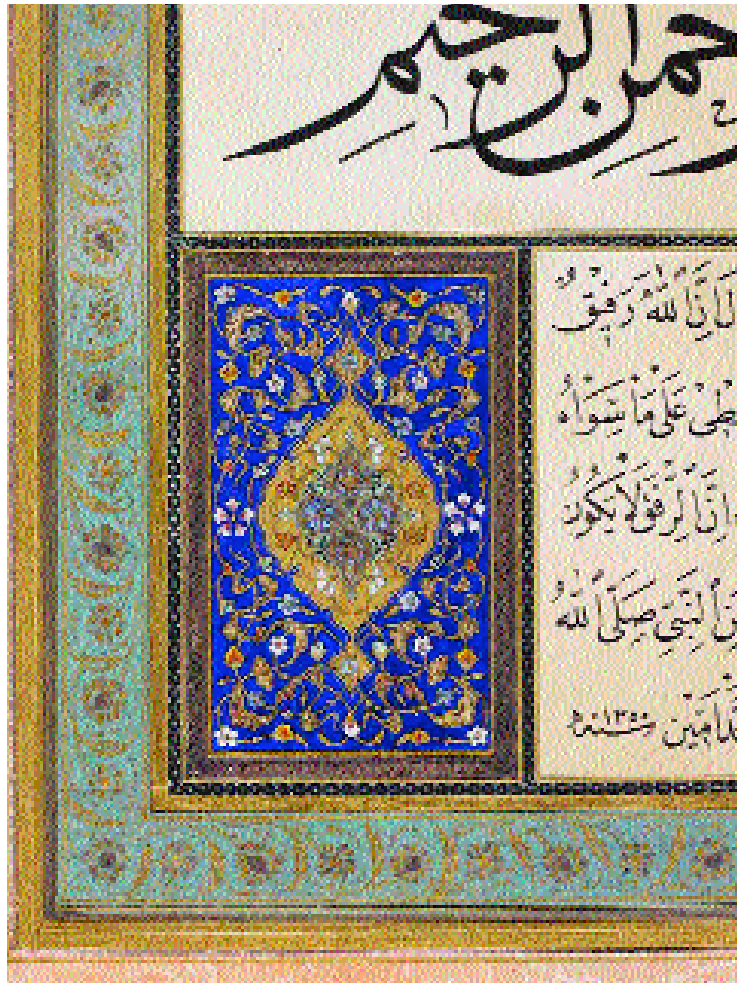 حمن الرحيم
اِنَّ اللهَ رَفِيقٌ
عَلَى مَا سِوَاهُ
اِنَّ الرِّفْقَ لَا يَكُونُ
النَّبِيِّ صَلَّى اللهُ
سنة ١٣٥٠